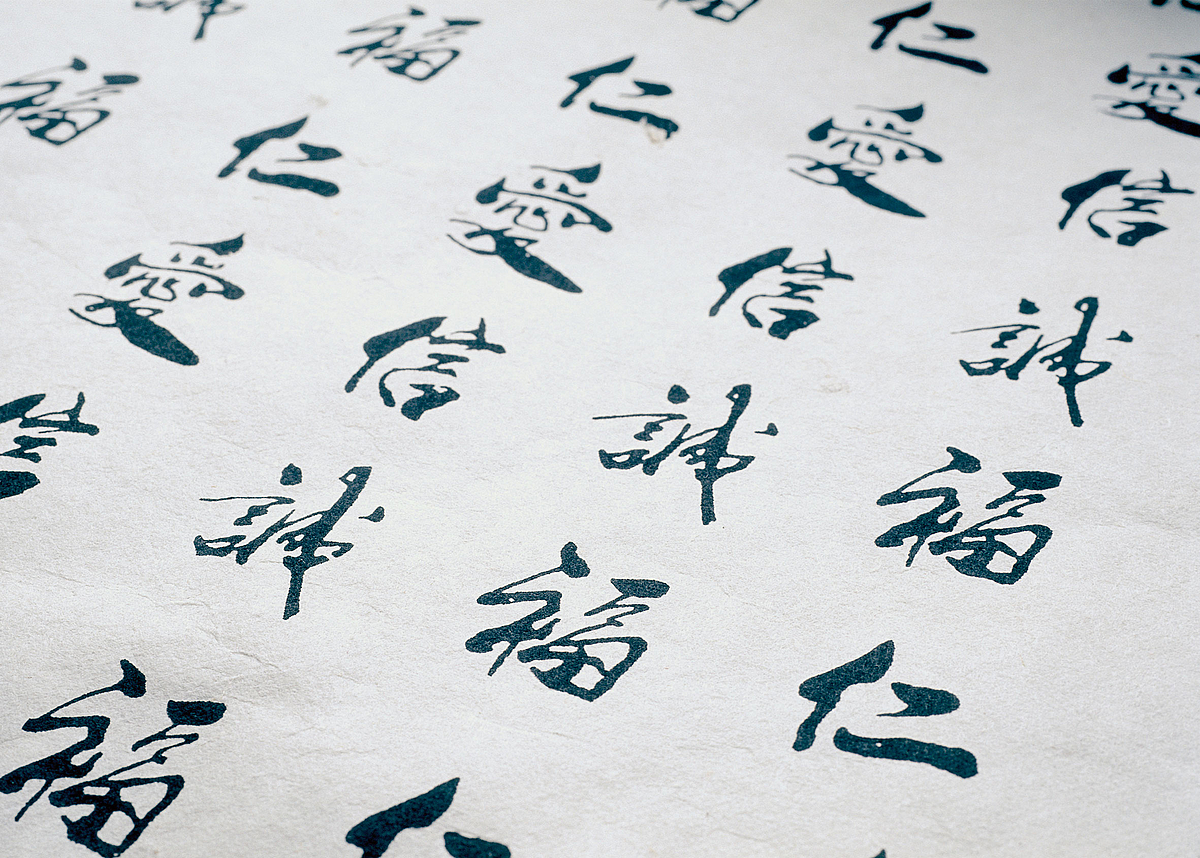 福 福
仁 仁 仁
愛 愛 愛 愛
信 信 信 信
誠 誠 誠
福 福 福
仁 仁